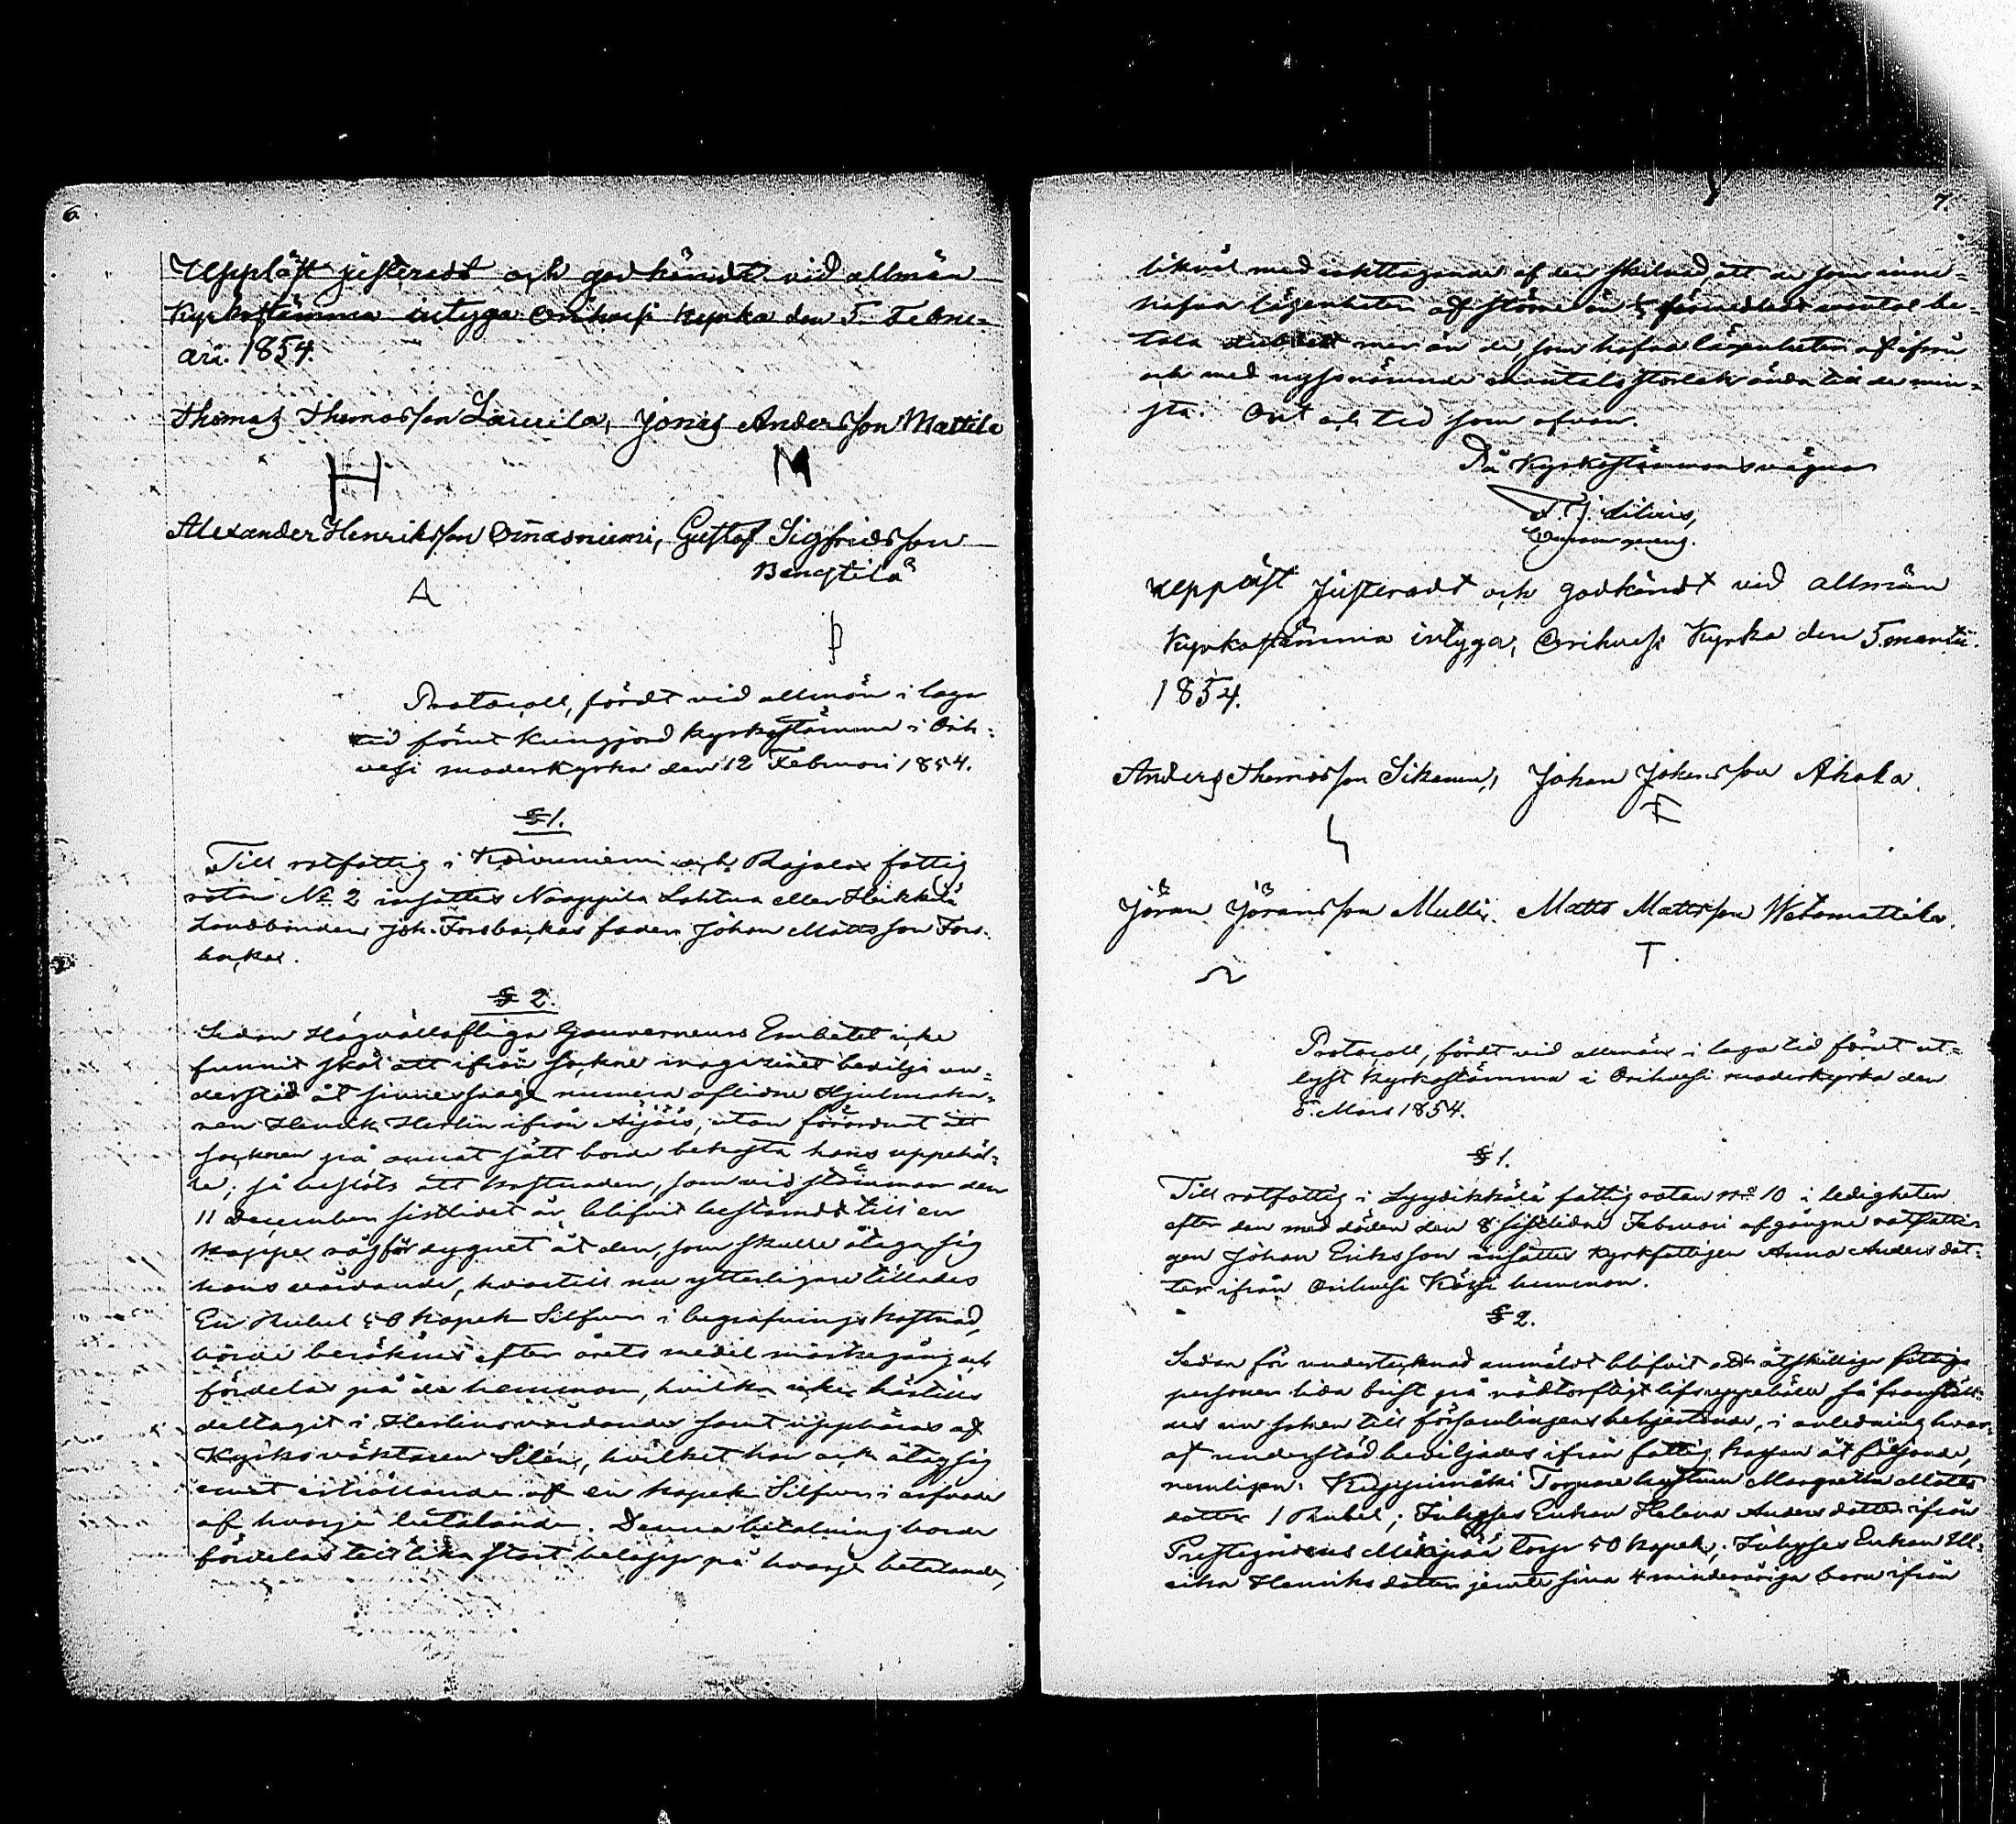 6.
Uppläst justeradt och godkändt vid allmän
Kyrkostämma intyga Orihvesi Kyrka den 5. Febru-
ari. 1854.
Thomas Thomasson Laurila, Jonas Andersson Mattila
H M
Alexander Henriksson Onnasniemi, Gustaf Sigfridsson
Bengtilä
A
Protocoll, fördt vid allmän i laga
tid förut kungjord kyrkostämma i Orih-
vesi moderkyrka den 12 Februari 1854.
§ 1.
Till rotfattig i Koivuniemi och Rajalax fattig
rotan No 2 insattes Naappila Lahtua eller Heikkilä
Landbonden Joh. Forsbackas fader Johan Mattsson Fors-
backa.
§ 2.
Sedan Högvällofliga Gouverneurs Embetet icke
funnit skäl att ifrån sockne magazinet bevilja un-
derstöd åt sinnessvage numera aflidne Hjulmaka-
ren Henrik Herlin ifrån Äijäis, utan förordnat att
socknen på annat sätt borde bekosta hans uppehäl-
le; så beslöts att kostnaden, som vid stämman den
11 December sistlidet år blifvit bestämdt till en
kappe råg för dygnet åt den, som skulle åtaga sig
hans vårdande, hvartill nu ytterligare tillades
En Rubel 50 Kopek Silfver i begrafnings kostnad,
borde beräknas efter årets medel markegång och
fördelas på de hemman, hvilka icke härtills
deltagit i Herlins vårdande samt uppbäras af
Kyrkoväktaren Silén, hvilket han ock åtog sig
emot erhållande af en kopek Silfver i arfvode
af hvarje betalande. Denna betalning borde
fördelas till lika stort belopp på hvarje betalande,
7.
likväl med iakttagande af den skilnad att de som inne-
hafva lägenheter af större än förmedladt mantal be-
tala dubbelt mer än de som hafva lägenheter af ifrån
och med nyssnämnde mantals storlek ända till de min-
sta. Ort och tid som ofvan.
På Kyrkostämmans vägnar
Upplast Justeradt och godkändt vid allmän
Kyrkostämma intyga, Orihvesi Kyrka den 5. martii.
1854.
Anders Thomasson Sikanen, Johan Johansson Ahola.
Jöran Jöransson Mulli. Matts Mattsson Wetomattila.
T
Protocoll, fördt vid allmän i laga tid förut ut-
lyst Kyrkostämma i Orihvesi moderkyrka den
5. Mars 1854.
§ 1.
Till rotfattig i Lyydikkälä fattig rotan No 10 i ledigheten
efter den med döden den 8 sistlidne Februari afgångne rotfatti-
gen Johan Eriksson insattes kyrkfattigen Anna Anders dot-
ter ifrån Orihvesi hemman.
§ 2.
Sedan för undertecknad anmäldt blifvit att åtskillige fattige
personer lida brist på nödtorftigt lifsuppehälle, så framställ-
des nu saken till församlingens behjertande, i anledning hvar-
af understöd beviljades ifrån fattig kassan åt följande,
nemligen: Torpare hustrun Margretha Matts
dotter 1 Rubel; Inhyses Enkan Helena Anders dotter ifrån
Prestegårdens Mäkipää torp 50 kopek; Inhyses Enkan Ul-
rika Henriks dotter jemte sina 4 minderåriga barn ifrån